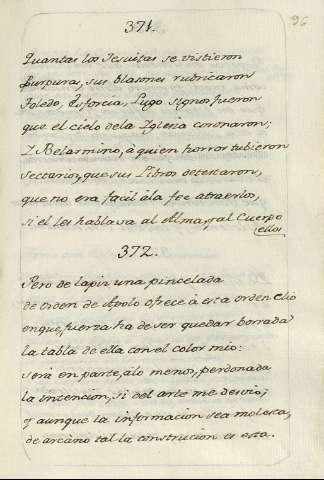 371.
96
Quantas los Jesuitas se vistieron
Purpuras, sus blasones rubricaron
Toledo, Esforcia, Lugo signos fueron
que el cielo dela Iglesia coronaron;
I Belarmino, à quien horror tubieron
Sectarios, que sus Libros detestaron,
que no era facil àla fee atraerlos,
si el les hablava al Alma, y al Cuerpo
ellos
372.
Pero de lapiz una pincelada
de orden de Apolo ofrece à esta orden Clio
en que, fuerza ha de ser quedar borrada
la tabla de ella con el color mio:
serà en parte, àlo menos, perdonada
la intencion, si del arte me desvio;
y aunque la informacion sea molesta,
de arcàno tal la construcion es esta.